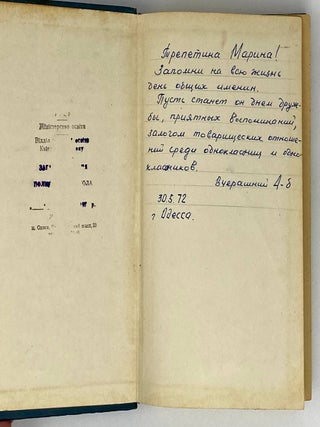 Міністерство освіти
Трепетина Марина!
Запомни на всю жизнь
день общих именин.
Пусть станет он днем друж-
бы, приятных воспоминаний,
залогом товарищеских отноше-
ний среди одноклассниц и одно-
классников.
Вчерашний
30.5.72
г Одесса.